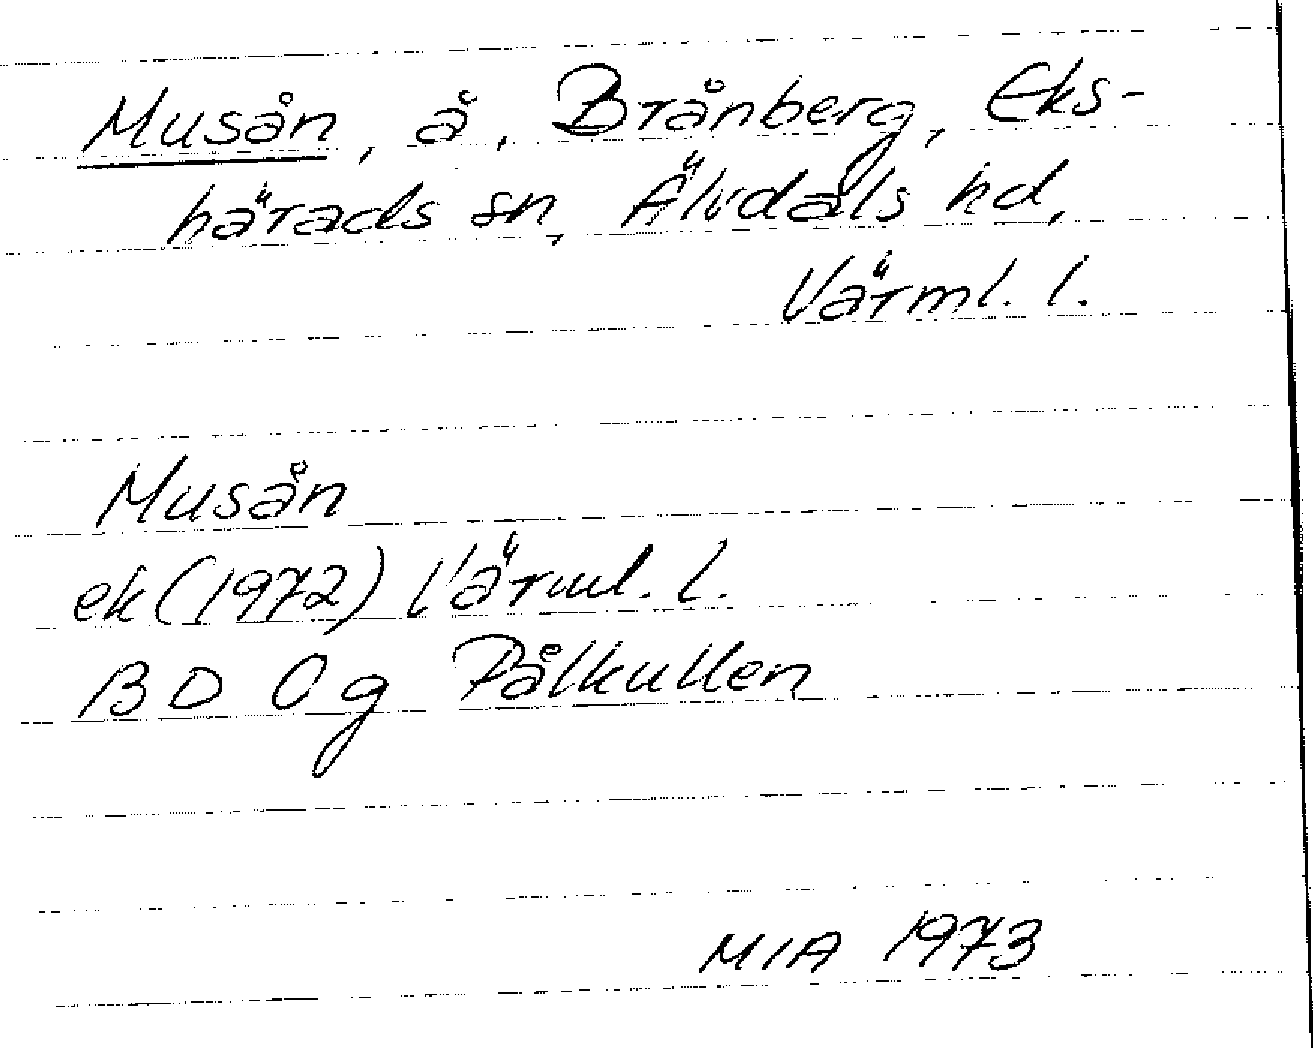 Musån, å, Brånberg, Eks-
härads sn, Älvdals hd,
Värml. l.
Musån
ek (1972) Värml. l.
BD Og Pålkullen
MIA 1973